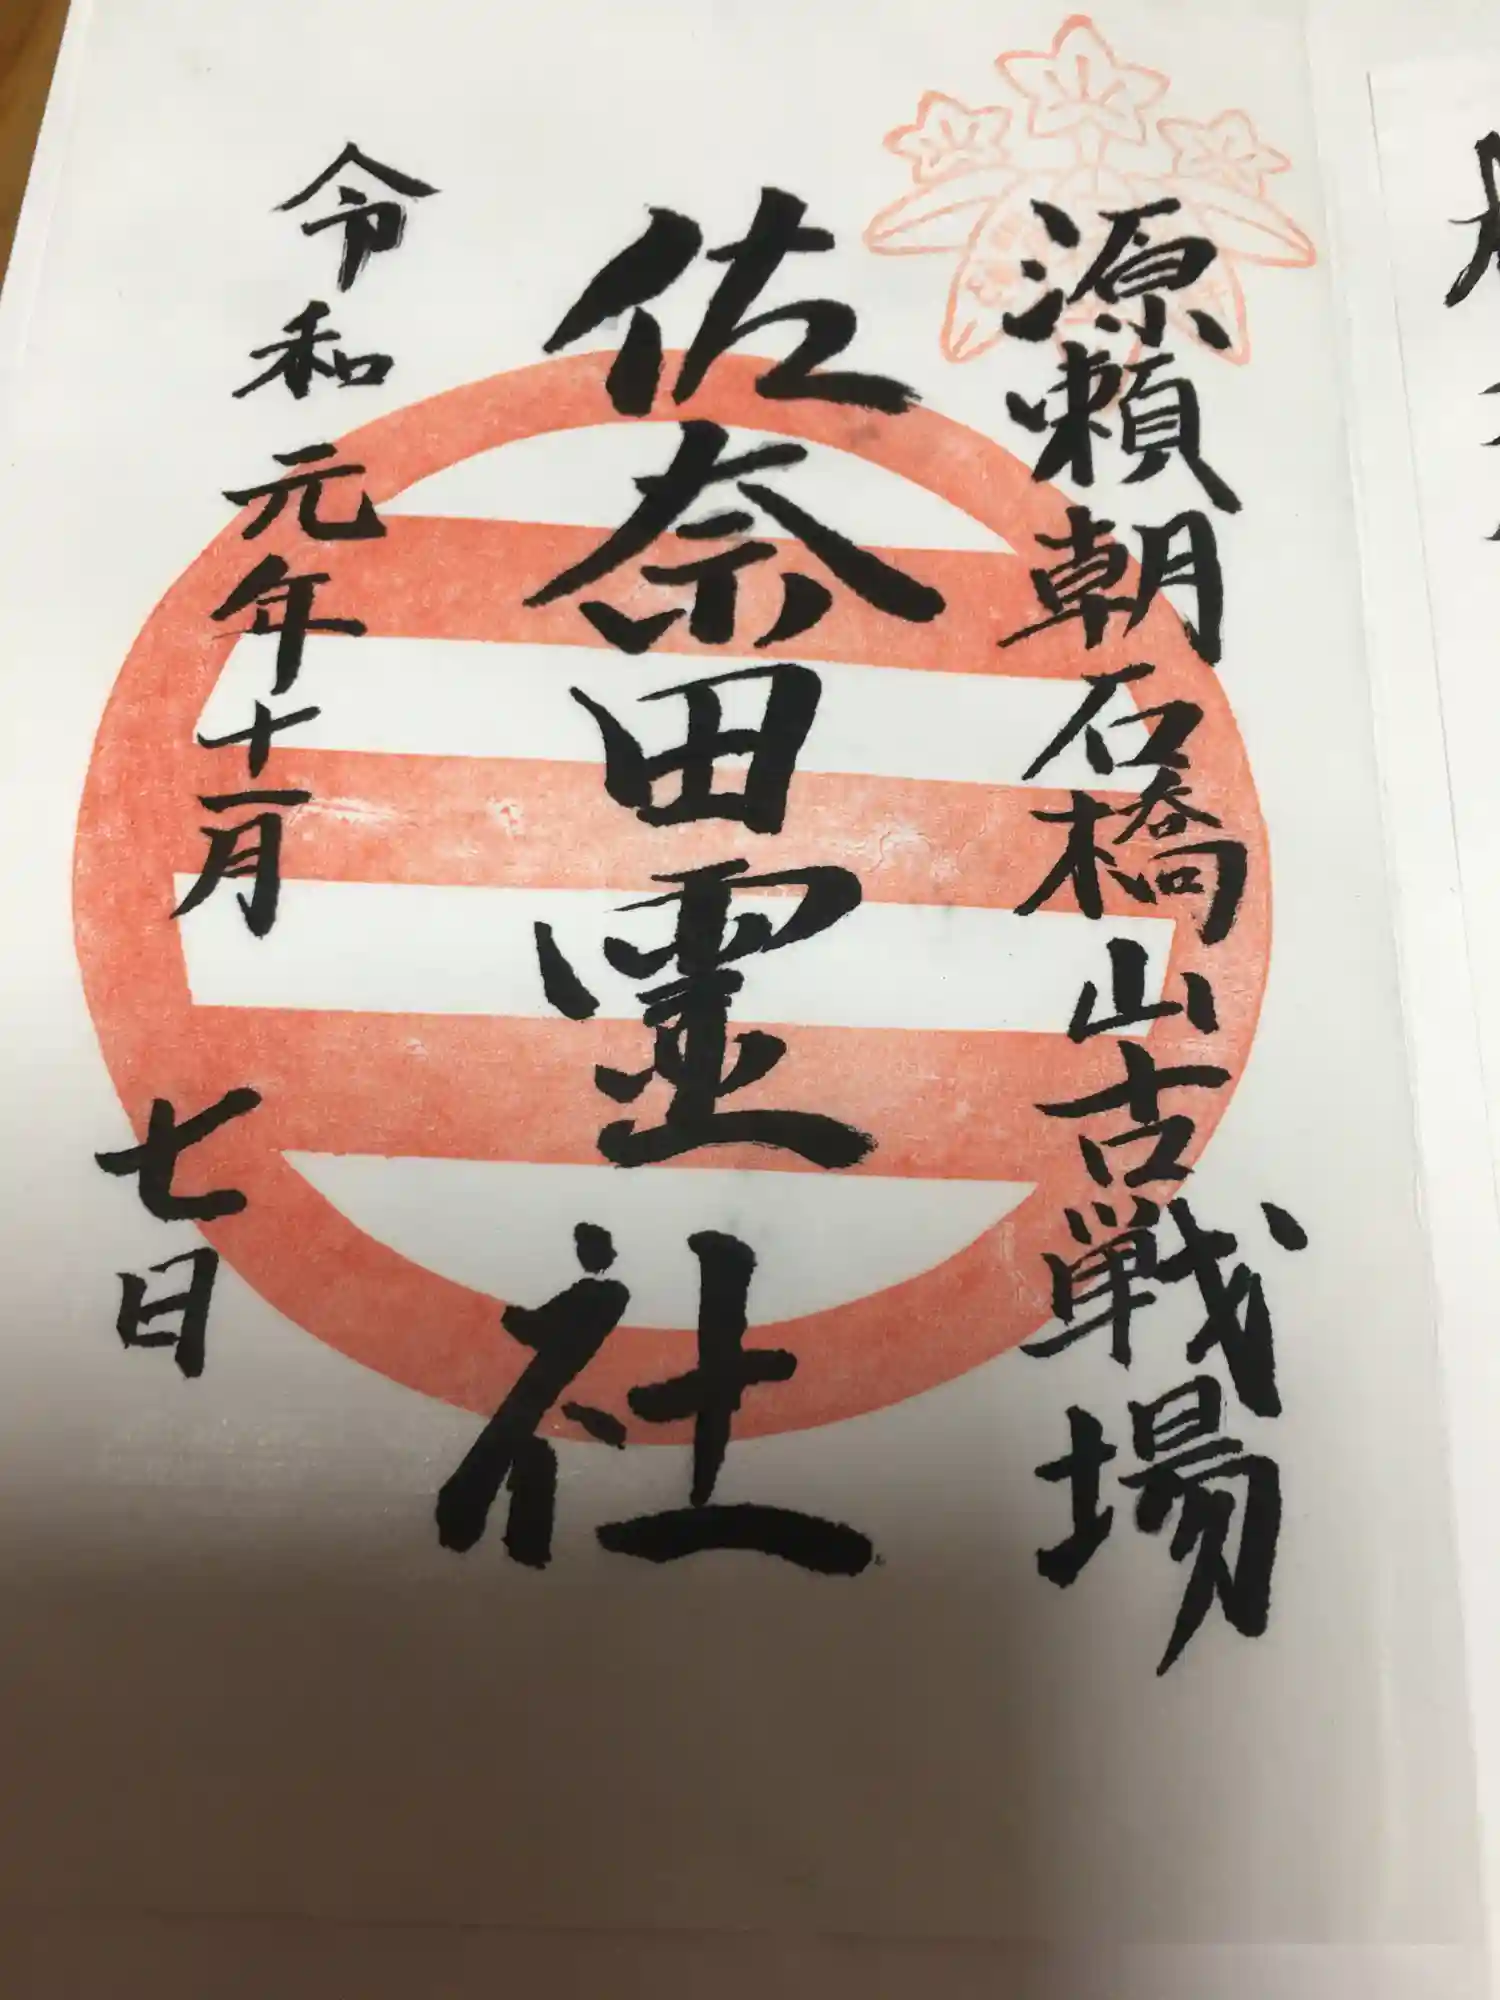 源頼朝石橋山古戦場
佐奈田霊社
令和元年十一月七日